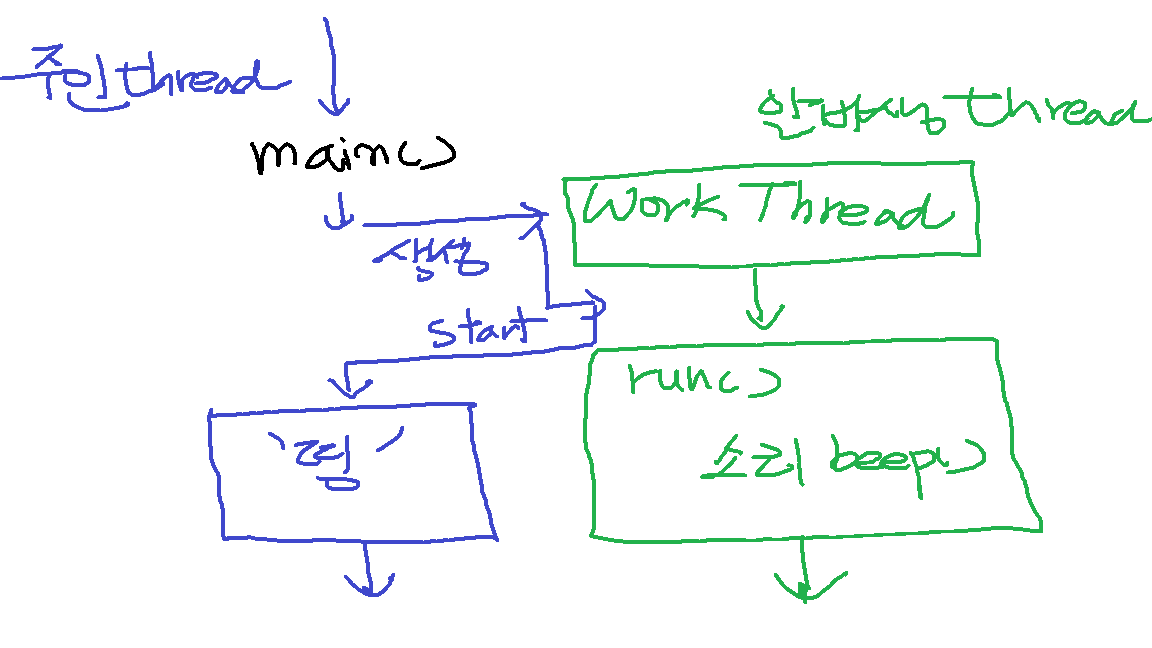 주인 thread
main()
생성
start
'띵'
안방마님 thread
Work Thread
run()
소리 beep()